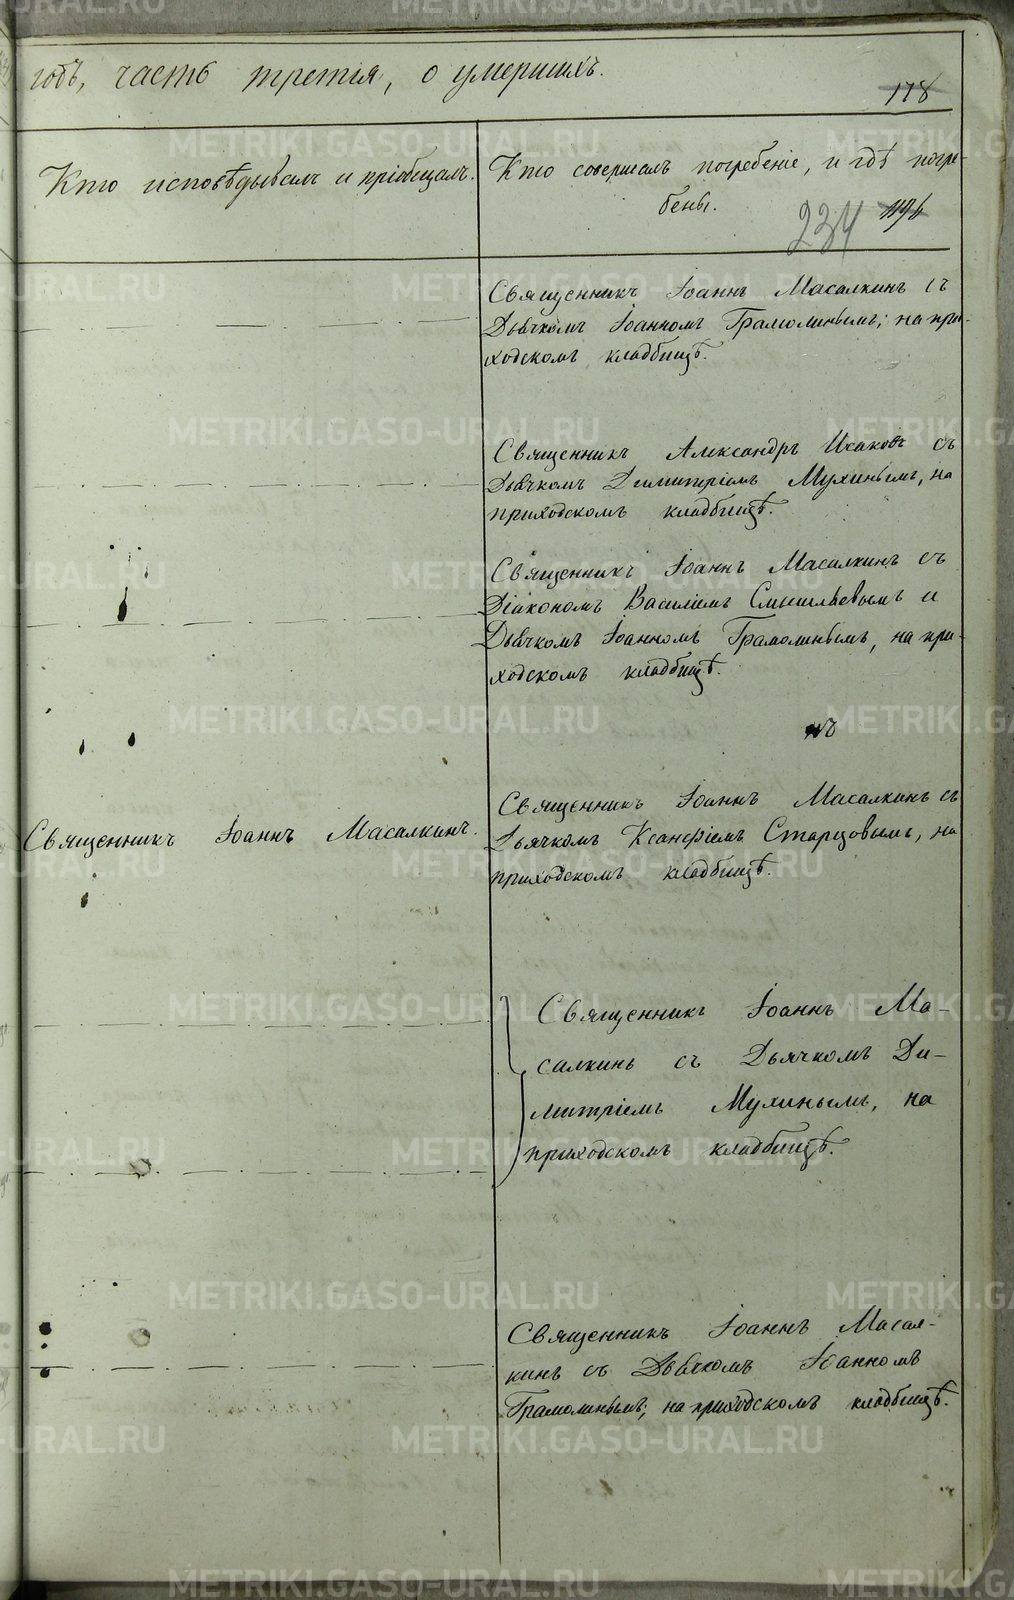 годъ, часть третія, о умершихъ.
178
Кто исповѣдывалъ и пріобщалъ.
Кто совершалъ погребеніе, и гдѣ погре-
бены.
234
Священникъ Іоаннъ Масалкинъ съ
Дьячкомъ Іоанномъ Грамолинымъ; на при-
ходскомъ кладбищѣ.
Священникъ Александръ Исаковъ съ
Дьячкомъ Димитріемъ Мухинымъ, на
приходскомъ кладбищѣ.
Священникъ Іоаннъ Масалкинъ съ
Діакономъ Василіемъ и
Дьячкомъ Іоанномъ Грамолинымъ, на при-
ходскомъ кладбищѣ.
Священникъ Іоаннъ Масалкинъ.
Священникъ Іоаннъ Масалкинъ съ
Дьячкомъ Ксанфіемъ Старцовымъ, на
приходскомъ кладбищѣ.
Священникъ Іоаннъ Ма-
салкинъ съ Дьячкомъ Ди-
митріемъ Мухинымъ, на
приходскомъ кладбищѣ.
Священникъ Іоаннъ Масал-
кинъ съ Дьячкомъ Іоанномъ
Грамолинымъ; на приходскомъ кладбищѣ.
METRIKI.GASO-URAL.RU